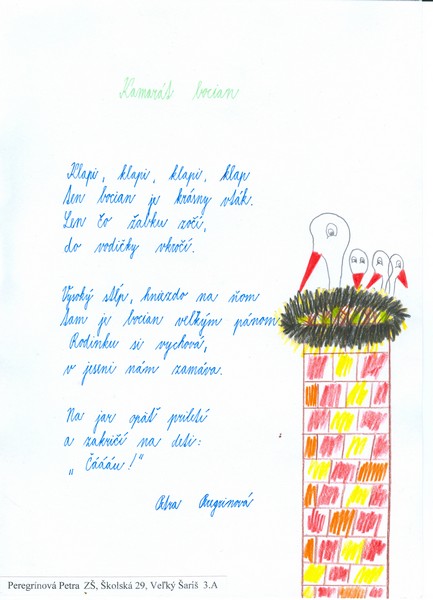 Kamarát bocian
Klapi, klapi, klapi, klap
ten bocian je krásny vták.
Len čo žabku zočí,
do vodičky vkročí.
Vysoký stĺp, hniezdo na ňom
tam je bocian veľkým pánom
Rodinku si vychová,
v jeseni nám zamáva.
Na jar opäť priletí
a zakričí na deti:
„Čáááu!“
Petra Peregrinová
Peregrínová Petra ZŠ, Školská 29, Veľký Šariš 3.A